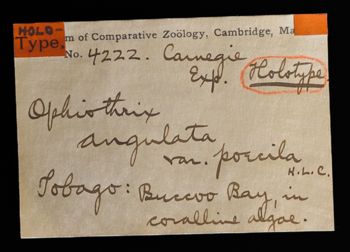 HOLO-
Type.
m of Comparative Zoölogy, Cambridge, Ma
No. 4222. Carnegie
Exp. Holotype
Ophiothrix
angulata
var. poecila
H.L.C.
Tobago: Buccoo Bay, in
coralline algae.